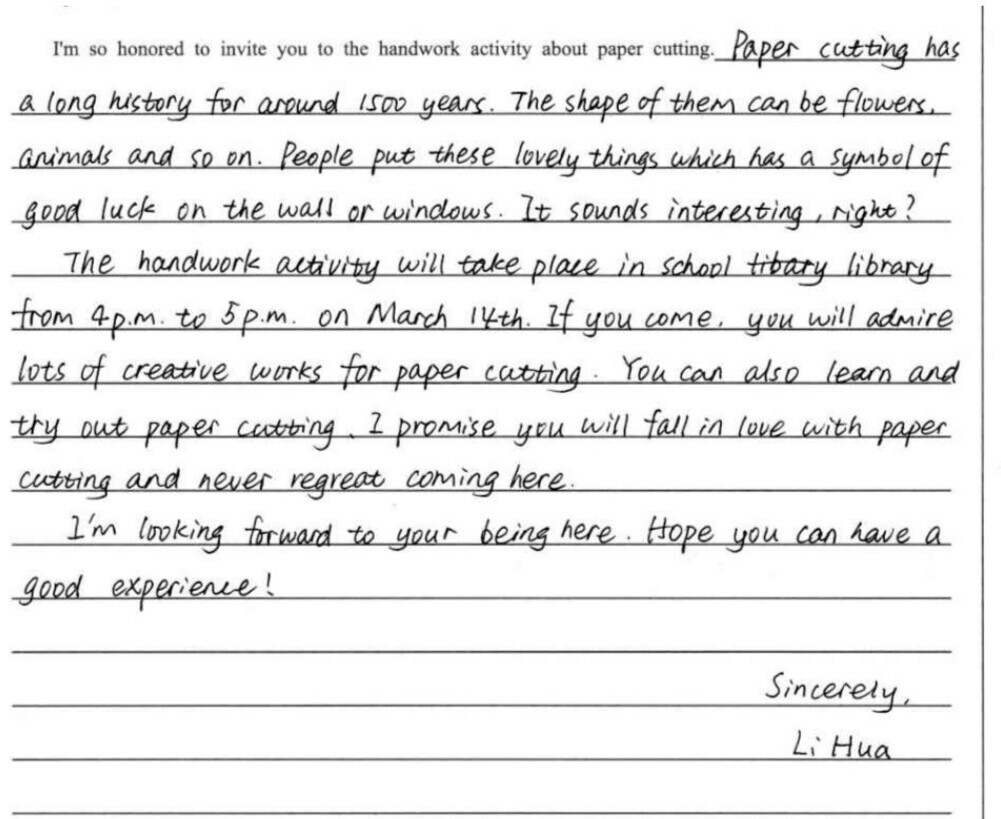 I'm so honored to invite you to the handwork activity about paper cutting. Paper cutting has
a long history for around 1500 years. The shape of them can be flowers,
animals and so on. People put these lovely things which has a symbol of
good luck on the wall or windows. It sounds interesting, right?
The handwork activity will take place in school library
from 4p.m. to 5p.m. on March 14th. If you come, you will admire
lots of creative works for paper cutting. You can also learn and
try out paper cutting. I promise you will fall in love with paper
cutting and never regreat coming here.
I'm looking forward to your being here. Hope you can have a
good experience!
Sincerely,
Li Hua